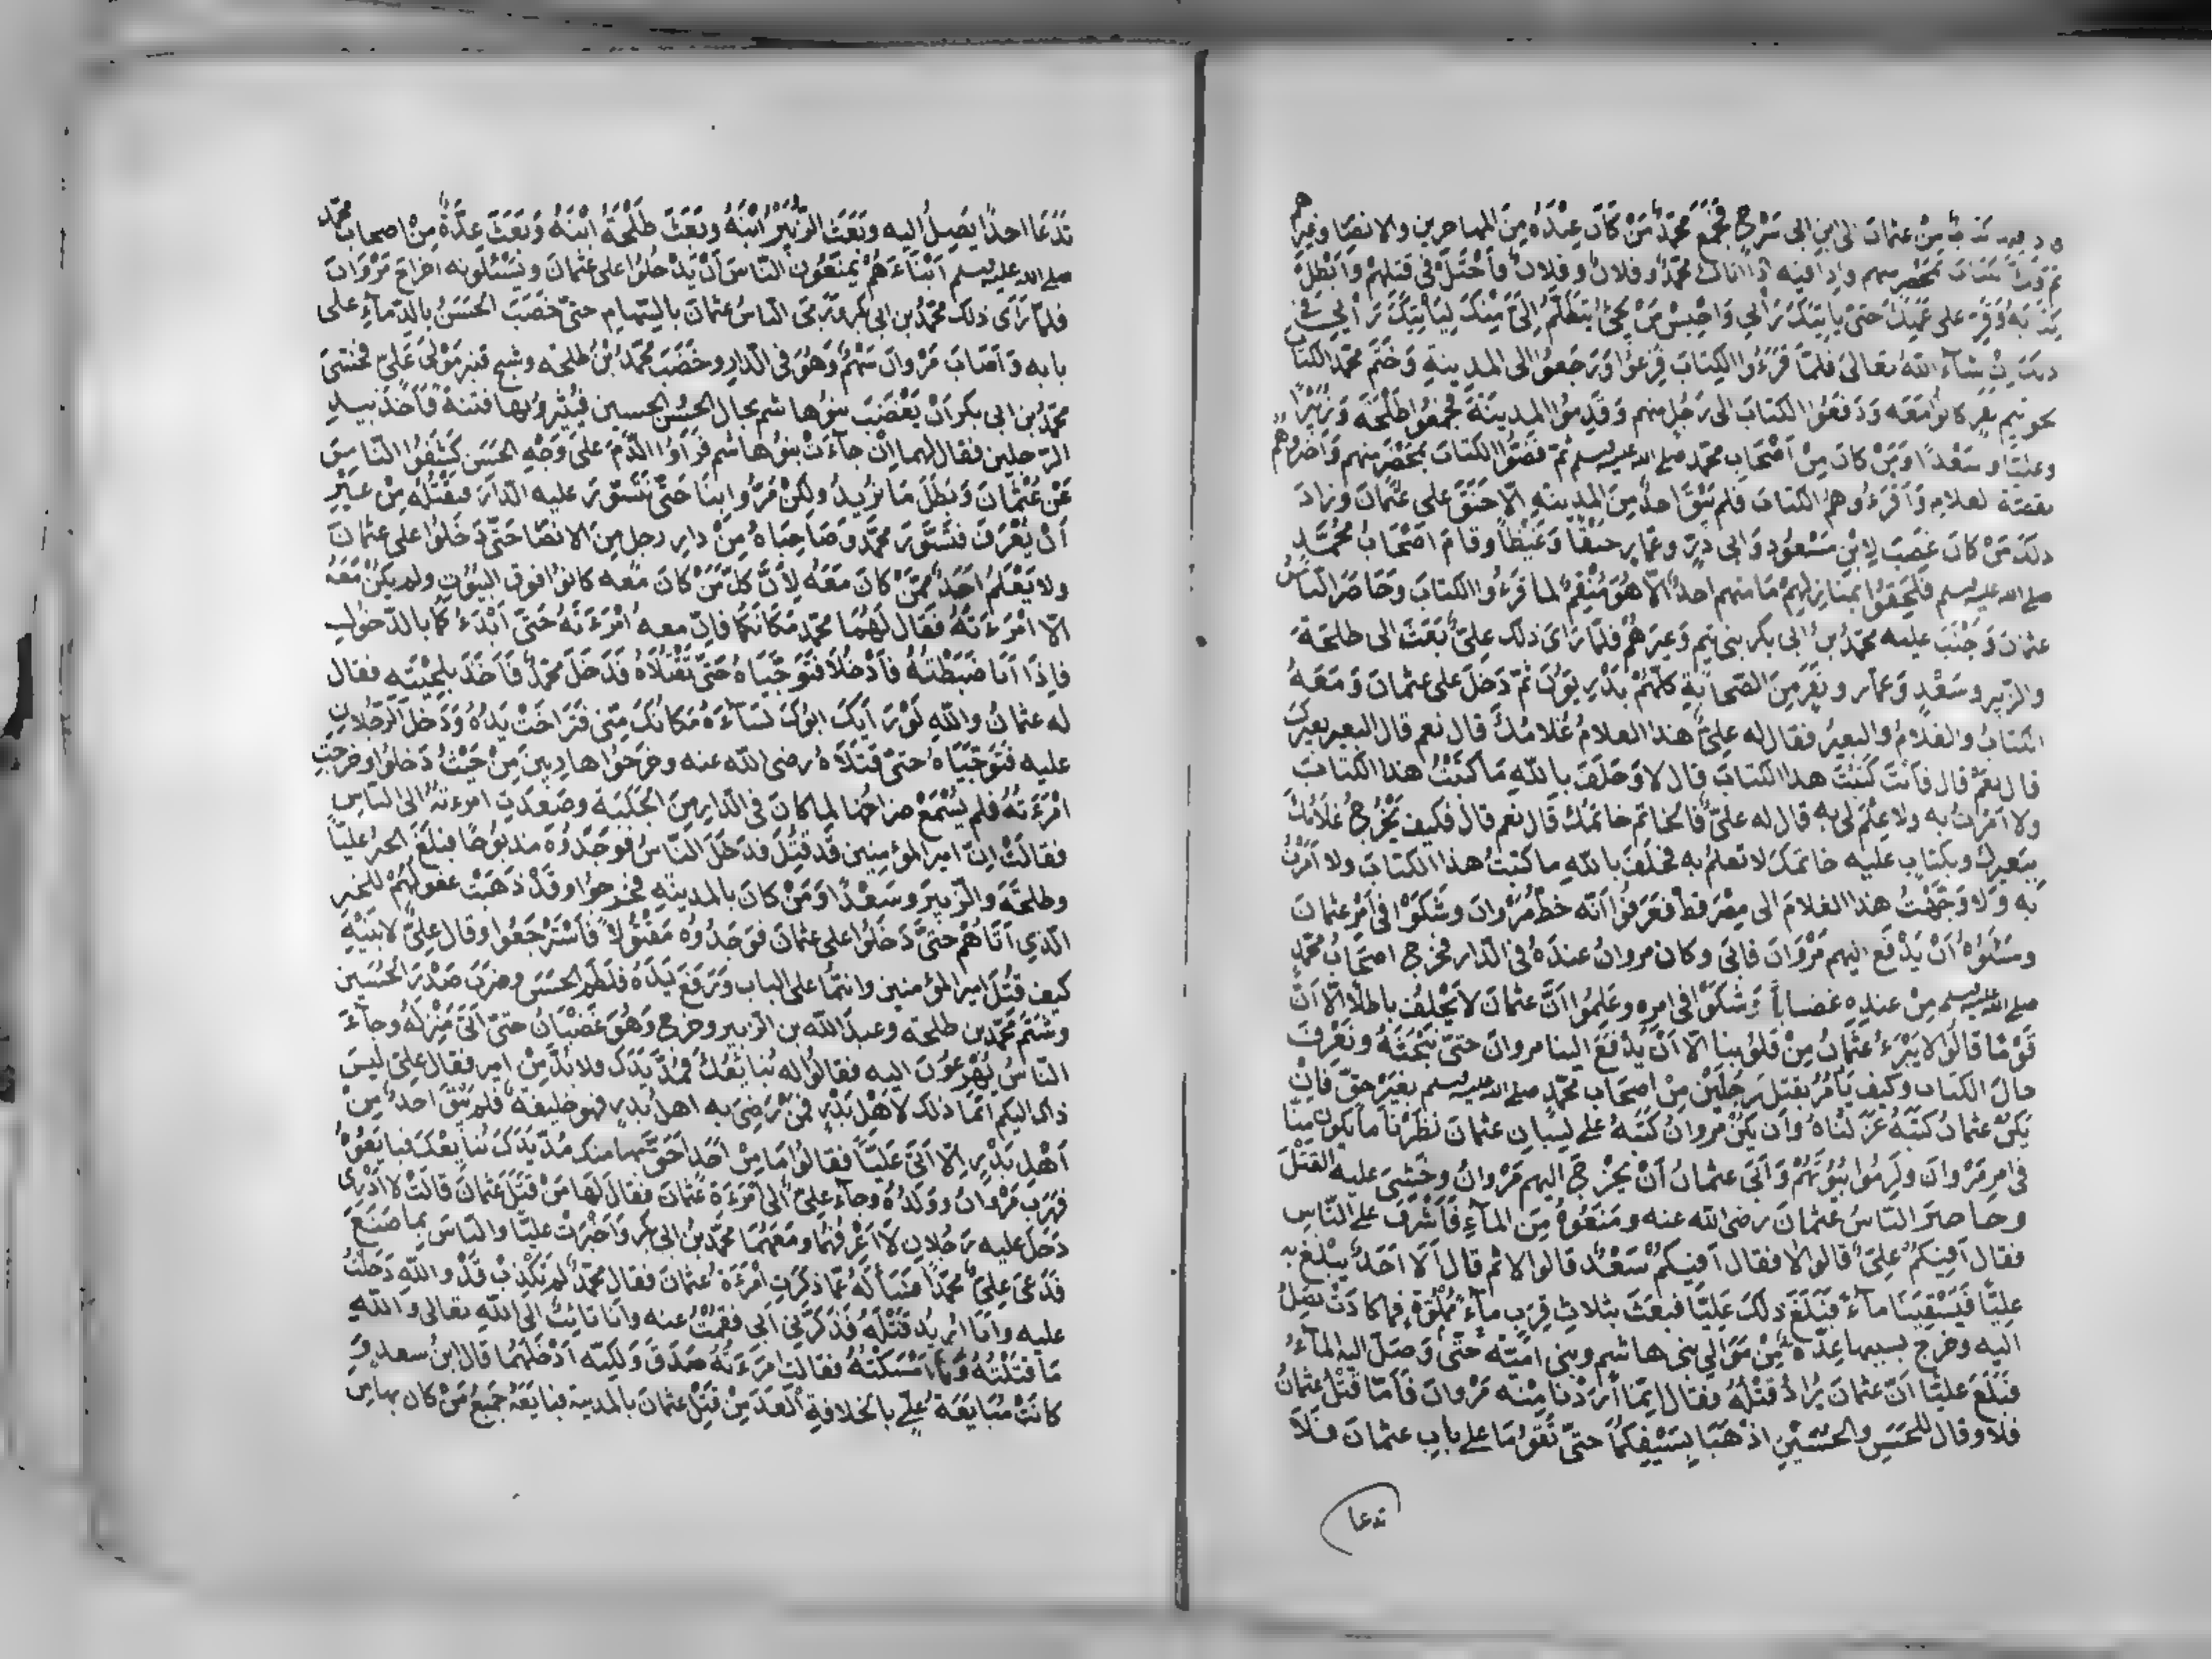 من عثمان الى ابن ابى سرح فجمع محمد من كان عنده من المهاجرين والانصار وغيرهم
بمحضر منهم فاذا فيه اذا اتاك محمد وفلان وفلان فاحتل فى قتلهم وابطل
على عملك حتى ياتيك رأيى واحبس من يجئ يتظلم الى منك لياتيك رأيى فى
ذلك ان شاء الله تعالى فلما قرءوا الكتاب فزعوا ورجعوا الى المدينة وختم محمد الكتاب
نفر كانوا معه ودفعوا الكتاب الى رجل منهم وقدموا المدينة فجمعوا طلحة وزبيرا
وعليّا وسعدًا ومن كان من اصحاب محمد صلى الله عليه وسلم ثم فضّوا الكتاب بمحضر منهم واخبروهم
بقصّة الغلام واقرءوهم الكتاب فلم يبق احد من المدينة الّا حنق على عثمان وزاد
ذلك من كان غضب لابن مسعود وابى ذرّ وعمّار حنقًا وغيظًا وقام اصحاب محمّد
صلى الله عليه وسلم فلحقوا بمنازلهم ما منهم احد الّا هو مغتم لما قرءوا الكتاب وحاصر الناس
عثمان وجنب عليه محمّد بن ابى بكر بنى تيم وغيرهم فلما راى ذلك علىّ بعث الى طلحة
والزبير وسعد وعمّار ونفر من الصحابة كلّهم بدريّون ثم دخل على عثمان ومعه
الكتاب والغلام والبعير فقال له علىّ هذا الغلام غلامك قال نعم قال البعير بعيرك
قال نعم قال فانت كتبت هذا الكتاب قال لا وحلف بالله ما كتبت هذا الكتاب
ولا امرت به ولا علم لى به قال له علىّ فالخاتم خاتمك قال نعم قال فكيف يخرج غلامك
ببعيرك وبكتاب عليه خاتمك لا تعلم به فحلف بالله ما كتبت هذا الكتاب ولا امرت
به ولا وجّهت هذا الغلام الى مصر قط فعرفوا انّه خط مروان وشكوا فى امر عثمان
وسئلوه ان يدفع اليهم مروان فابى وكان مروان عنده فى الدار فخرج اصحاب محمّد
صلى الله عليه وسلم من عنده غضابًا وشكوا فى امره وعلموا انّ عثمان لا يحلف باطلا الّا انّ
قومًا قالوا لا يبرء عثمان من قلوبنا الّا ان يدفع الينا مروان حتى نبحثه ونعرف
حال الكتاب وكيف يأمر بقتل رجلين من اصحاب محمّد صلى الله عليه وسلم بغير حقّ فان
يكن عثمان كتبه عزلناه وان يكن مروان كتبه على لسان عثمان نظرنا ما يكون منّا
فى امر مروان ولزموا بيوتهم وابى عثمان ان يخرج اليهم مروان وخشى عليه القتل
وحاصر الناس عثمان رضى الله عنه ومنعوه من الماء فاشرف على الناس
فقال افيكم علىّ قالوا لا فقال افيكم سعد قالوا لا ثم قال الا احد يبلغ به
عليّا فيسقينا ماء فبلغ ذلك عليّا فبعث بثلاث قرب ماء مملوة فما كادت تصل
اليه وخرج بسببها عدّة من موالى بنى هاشم وبنى اميّة حتى وصل اليه الماء
فبلغ عليّا انّ عثمان يراد قتله فقال انّما اردنا منه مروان فامّا قتل عثمان
فلا وقال للحسن والحسين اذهبا بسيفكما حتى تقوما على باب عثمان فلا
تدعا
تدعا احدًا يصل اليه وبعث الزبير ابنه وبعث طلحة ابنه وبعث عدّة من اصحاب محمّد
صلى الله عليه وسلم ابناءهم يمنعون الناس ان يدخلوا على عثمان ويسئلونه اخراج مروان
فلمّا راى ذلك محمّد بن ابى بكر ورمى الناس عثمان بالسهام حتى خضب الحسن بالدماء على
بابه واصاب مروان سهم وهو فى الدار وخضب محمّد بن طلحة وشج قنبر مولى علىّ فخشى
محمّد بن ابى بكر ان يغضب بنوها شم بحال الحسن الحسين فيثيروبها فتنة فاخذ بيد
الرجلين فقال لهما ان جاءت بنو هاشم فراوا الدّم على وجه الحسن كشفوا الناس
عن عثمان وبطل ما نريد ولكن مرّوا بنا حتى نتسوّر عليه الدار فنقتله من غير
ان يعرف فتسوّر محمّد وصاحباه من دار رجل من الانصار حتى دخلوا على عثمان
ولا يعلم احد ممّن كان معه لانّ كلّ من كان معه كانوا فوق البيوت ولم يكن معه
الّا امرءته فقال لهما محمّد مكانكما فانّ معه امرءته حتى ابدءكما بالدّخول
فاذا انا ضبطته فادخلا فتوجّئاه حتى تقتلاه فدخل محمّد فاخذ بلحيته فقال
له عثمان والله لو رآك ابوك لساءه مكانك منّى فتراخت يده ودخل الرجلان
عليه فتوجّئاه حتى قتلاه رضى الله عنه وخرجوا هاربين من حيث دخلوا وخرجت
امرءته فلم يسمع صراخها لما كان فى الدار من الجلبة وصعدت امرءته الى الناس
فقالت انّ امير المؤمنين قد قتل فدخل الناس فوجدوه مذبوحًا فبلغ الخبر عليّا
وطلحة والزبير وسعدًا ومن كان بالمدينة فخرجوا وقد ذهبت عقولهم للخبر
الذى اتاهم حتى دخلوا على عثمان فوجدوه مقتولا فاسترجعوا وقال علىّ لابنيه
كيف قتل امير المؤمنين وانتما على الباب ورفع يده فلطم الحسن وضرب صدر الحسين
وشتم محمّد بن طلحة وعبد الله بن الزبير وخرج وهو غضبان حتى اتى منزله وجاء
الناس يهرعون اليه فقالوا له نبايعك فمدّ يدك ولا بدّ من امير فقال علىّ ليس
ذاك اليكم انما ذلك لاهل بدر فمن رضى به اهل بدر فهو خليفة فلم يبق احد من
اهل بدر الّا اتى عليّا فقالوا ما من احد احق بها منك مدّ يدك نبايعك فبايعوه
فهرب مروان وولده وجاء علىّ الى امرءة عثمان فقال لها من قتل عثمان قالت لا ادرى
دخل عليه رجلان لا اعرفهما ومعهما محمّد بن ابى بكر واخبرت عليّا والناس بما صنع
فدعى علىّ محمّدًا فسأله عمّا ذكرت امرءة عثمان فقال محمّد لم تكذب قد والله دخلت
عليه وانا اريد قتله فذكّرنى ابى فقمت عنه وانا تائب الى الله تعالى والله
ما قتلته ولا امسكته فقالت امرءته صدق ولكنّه ادخلهما قال ابن سعد و
كانت مبايعة علىّ بالخلافة الغد من قتل عثمان بالمدينة فبايعه جميع من كان بها من